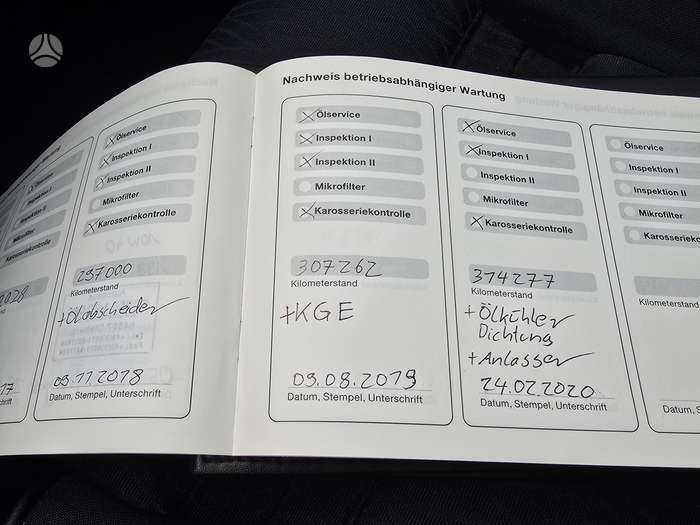 Wartung
Ölservice
Inspektion I
Inspektion II
Mikrofilter
Karosseriekontrolle
Ölservice
Inspektion I
Inspektion II
Mikrofilter
Karosseriekontrolle
297000
Kilometerstand
+Ölabscheider
09.11.2018
Datum, Stempel, Unterschrift
Nachweis betriebsabhängiger Wartung
Ölservice
Inspektion I
Inspektion II
Mikrofilter
Karosseriekontrolle
307262
Kilometerstand
+KGE
09.08.2019
Datum, Stempel, Unterschrift
Ölservice
Inspektion I
Inspektion II
Mikrofilter
Karosseriekontrolle
314277
Kilometerstand
+ Ölkühler
Dichtung
+Anlasser
24.02.2020
Datum, Stempel, Unterschrift
Ölservice
Inspektion I
Inspektion II
Mikrofilter
Karosseriekon
Kilometerstand
Datum, S